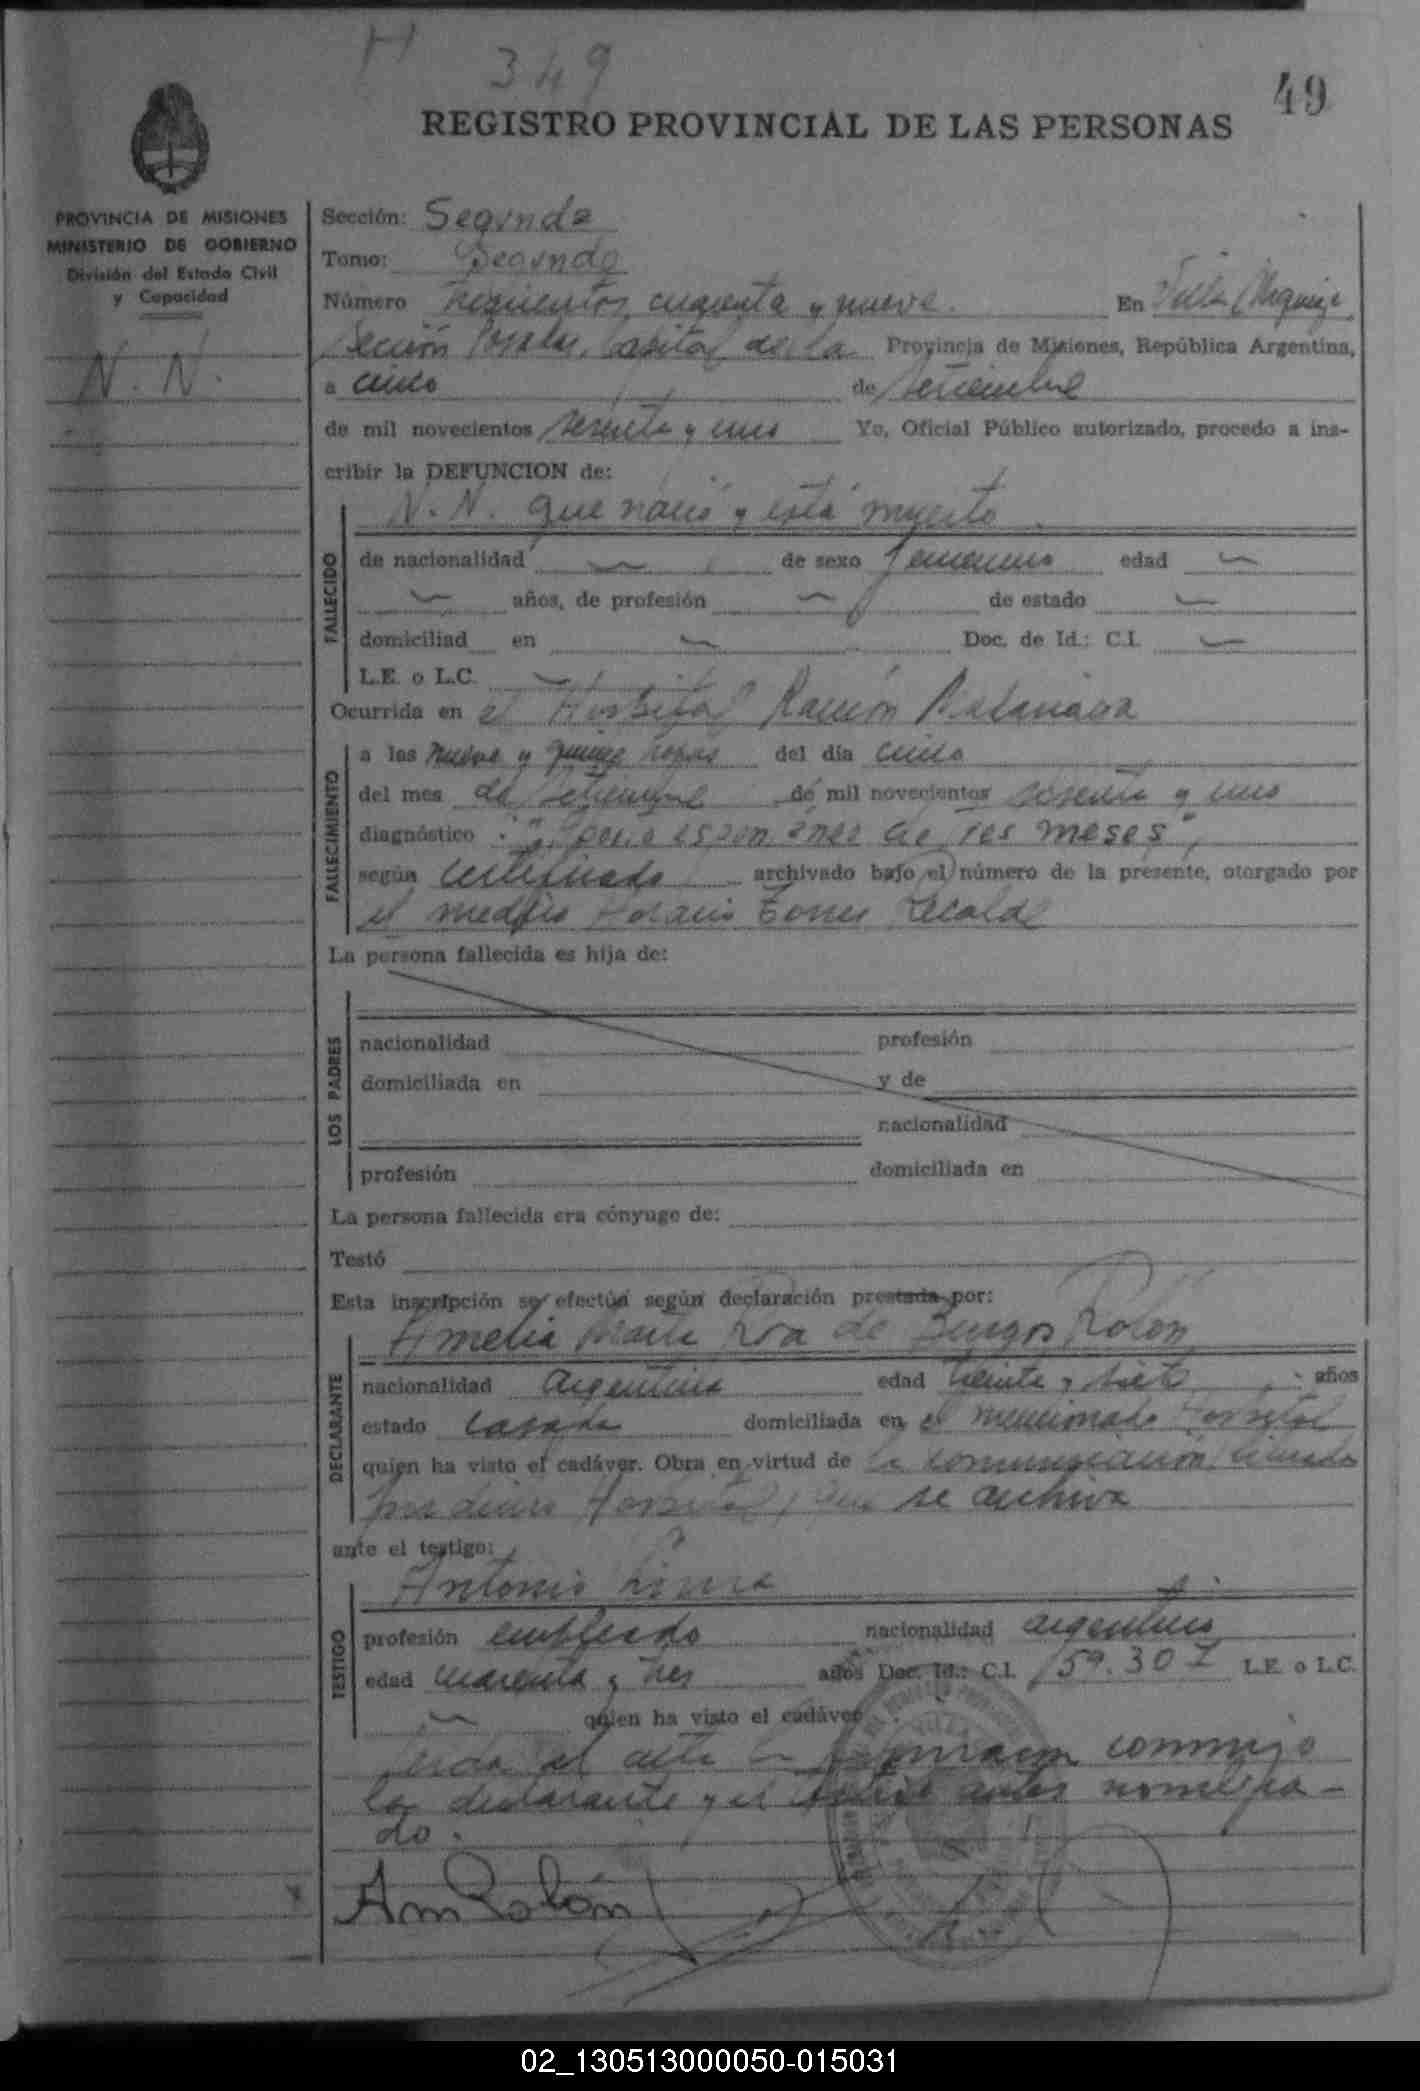 H 349
49
REGISTRO PROVINCIAL DE LAS PERSONAS
PROVINCIA DE MISIONES
MINISTERIO DE GOBIERNO
División del Estado Civil
y Capacidad
N. N.
Sección: Segunda
Tomo: Segundo
Número trescientos cuarenta y nueve. En Villa Urquiza
Sección Posadas, Capital de la Provincia de Misiones, República Argentina,
a cinco de setiembre
de mil novecientos sesenta y uno Yo, Oficial Público autorizado, procedo a ins-
cribir la DEFUNCION de:
N. N. que nació y está muerto
FALLECIDO
de nacionalidad de sexo femenino edad
años, de profesión de estado
domiciliad en Doc. de Id.: C.I.
L.E. o L.C.
Ocurrida en el Hospital Ramón Madariaga
FALLECIMIENTO
a las nueve y quince horas del día cinco
del mes de setiembre de mil novecientos sesenta y uno
diagnóstico : de tres meses",
según certificado archivado bajo el número de la presente, otorgado por
el médico Horacio Torres Recalde
La persona fallecida es hija de:
LOS PADRES
nacionalidad profesión
domiciliada en y de
nacionalidad
profesión domiciliada en
La persona fallecida era cónyuge de:
Testó
Esta inscripción se efectúa según declaración prestada por:
Amelia Marta Roa de Burgos Rolón
DECLARANTE
nacionalidad argentina edad treinta y siete años
estado casada domiciliada en el mencionado Hospital
quien ha visto el cadáver. Obra en virtud de la comunicación librada
por dicho Hospital, que se archiva
ante el testigo:
Antonio Lima
TESTIGO
profesión empleado nacionalidad argentino
edad cuarenta y tres años Doc. Id.: C.I. 159.307 L.E. o L.C.
quien ha visto el cadáver
Leída el acta la firmaron conmigo
la declarante y el testigo antes nombra-
do.
Am Rolón
02_130513000050-015031